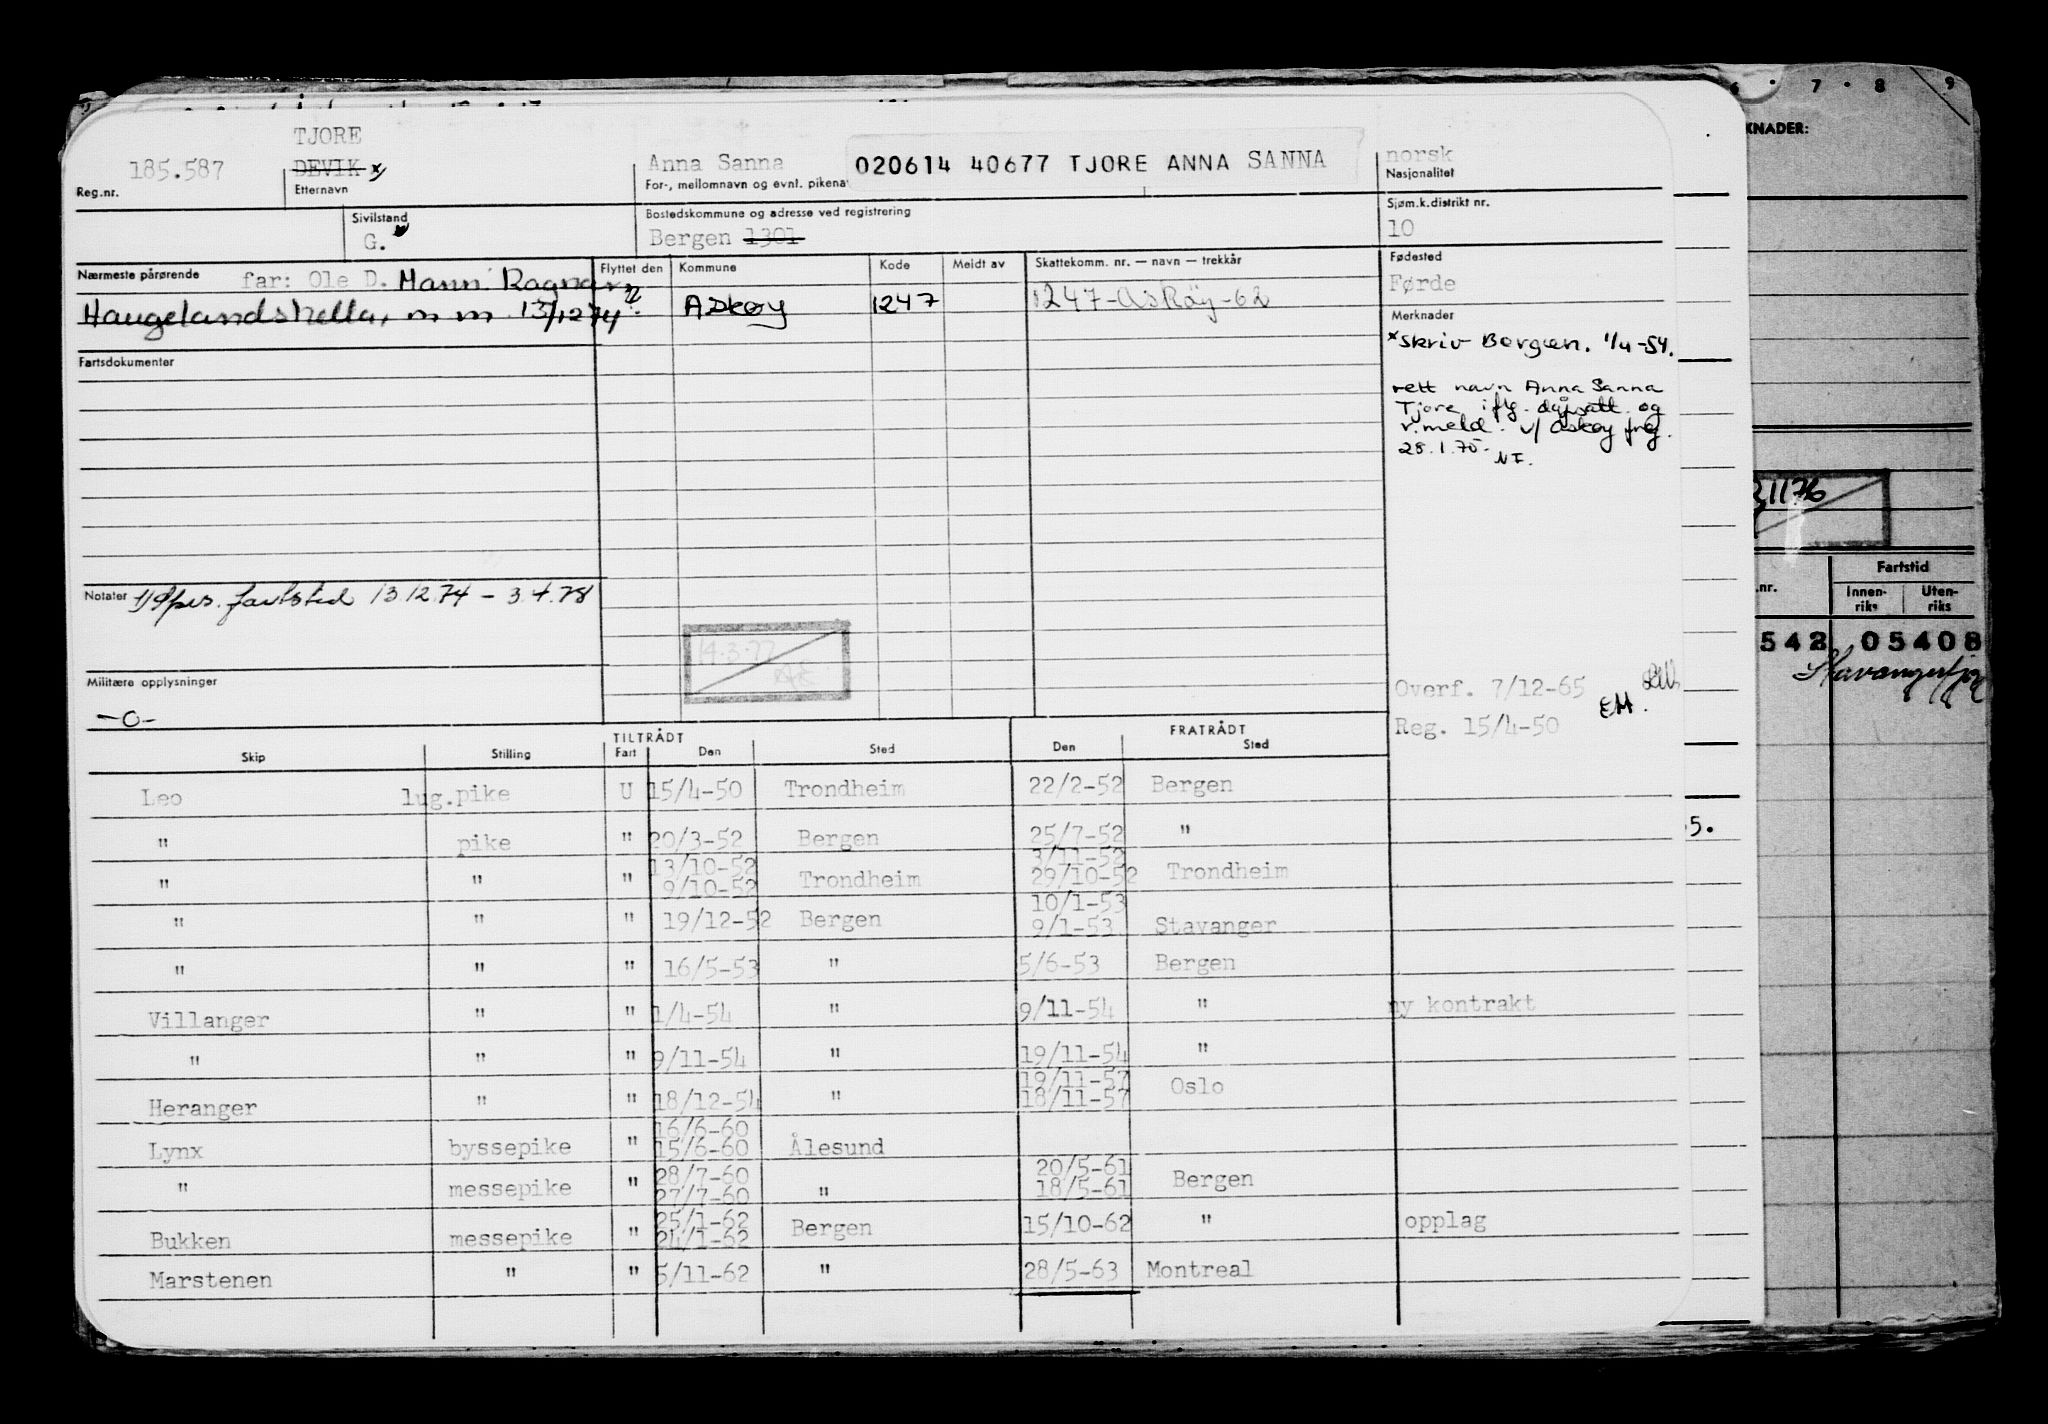 6 · 7 · 8 9
KNADER:
TJORE
185.587 DEVIK x) Anna Sanna 020614 40677 TJORE ANNA SANNA norsk
Reg.nr. Etternavn For-, mellomnavn og evnt. pikena Nasjonalitet
Sivilstand Bostedskommune og adresse ved registrering Sjøm.k.distrikt nr.
G. Bergen 1301 10
Nærmeste pårørende far: Ole D. Mann: Ragnar Flyttet den Kommune Kode Meldt av Skattekomm. nr. — navn — trekkår Fødested
Førde
Haugelandshella, m m 13/12 74 ? Askøy 1247 1247-Askøy-62
Merknader
x skriv Bergen. 1/4-54.
Fartsdokumenter
rett navn Anna Sanna
Tjore iflg. dåpsatt. og
v.meld. v/ Askøy freg.
28.1.75 NF.
31176
Fartstid
nr. Innen-riks Uten-riks
Notater fartsted 13 12 74 – 3.4.78
542 05408
Stavangerfjo
14.3.77
AK
Militære opplysninger
-0-
Overf. 7/12-65
EH.
Reg. 15/4-50
TILTRÅDT FRATRÅDT
Skip Stilling Fart Den Sted Den Sted
Leo lug.pike U 15/4-50 Trondheim 22/2-52 Bergen
" pike " 20/3-52 Bergen 25/7-52 "
5.
13/10-52 3/11-52
" " " 9/10-52 Trondheim 29/10-52 Trondheim
10/1-53
" " " 19/12-52 Bergen 9/1-53 Stavanger
" " " 16/5-53 " 5/6-53 Bergen
Villanger " " 1/4-54 " 9/11-54 " ny kontrakt
" " " 9/11-54 " 19/11-54 "
19/11-57
Heranger " " 18/12-54 " 18/11-57 Oslo
16/6-60
Lynx byssepike " 15/6-60 Ålesund
28/7-60 20/5-61
" messepike " 27/7-60 " 18/5-61 Bergen
25/1-62
Bukken messepike " 24/1-62 Bergen 15/10-62 " opplag
Marstenen " " 5/11-62 " 28/5-63 Montreal